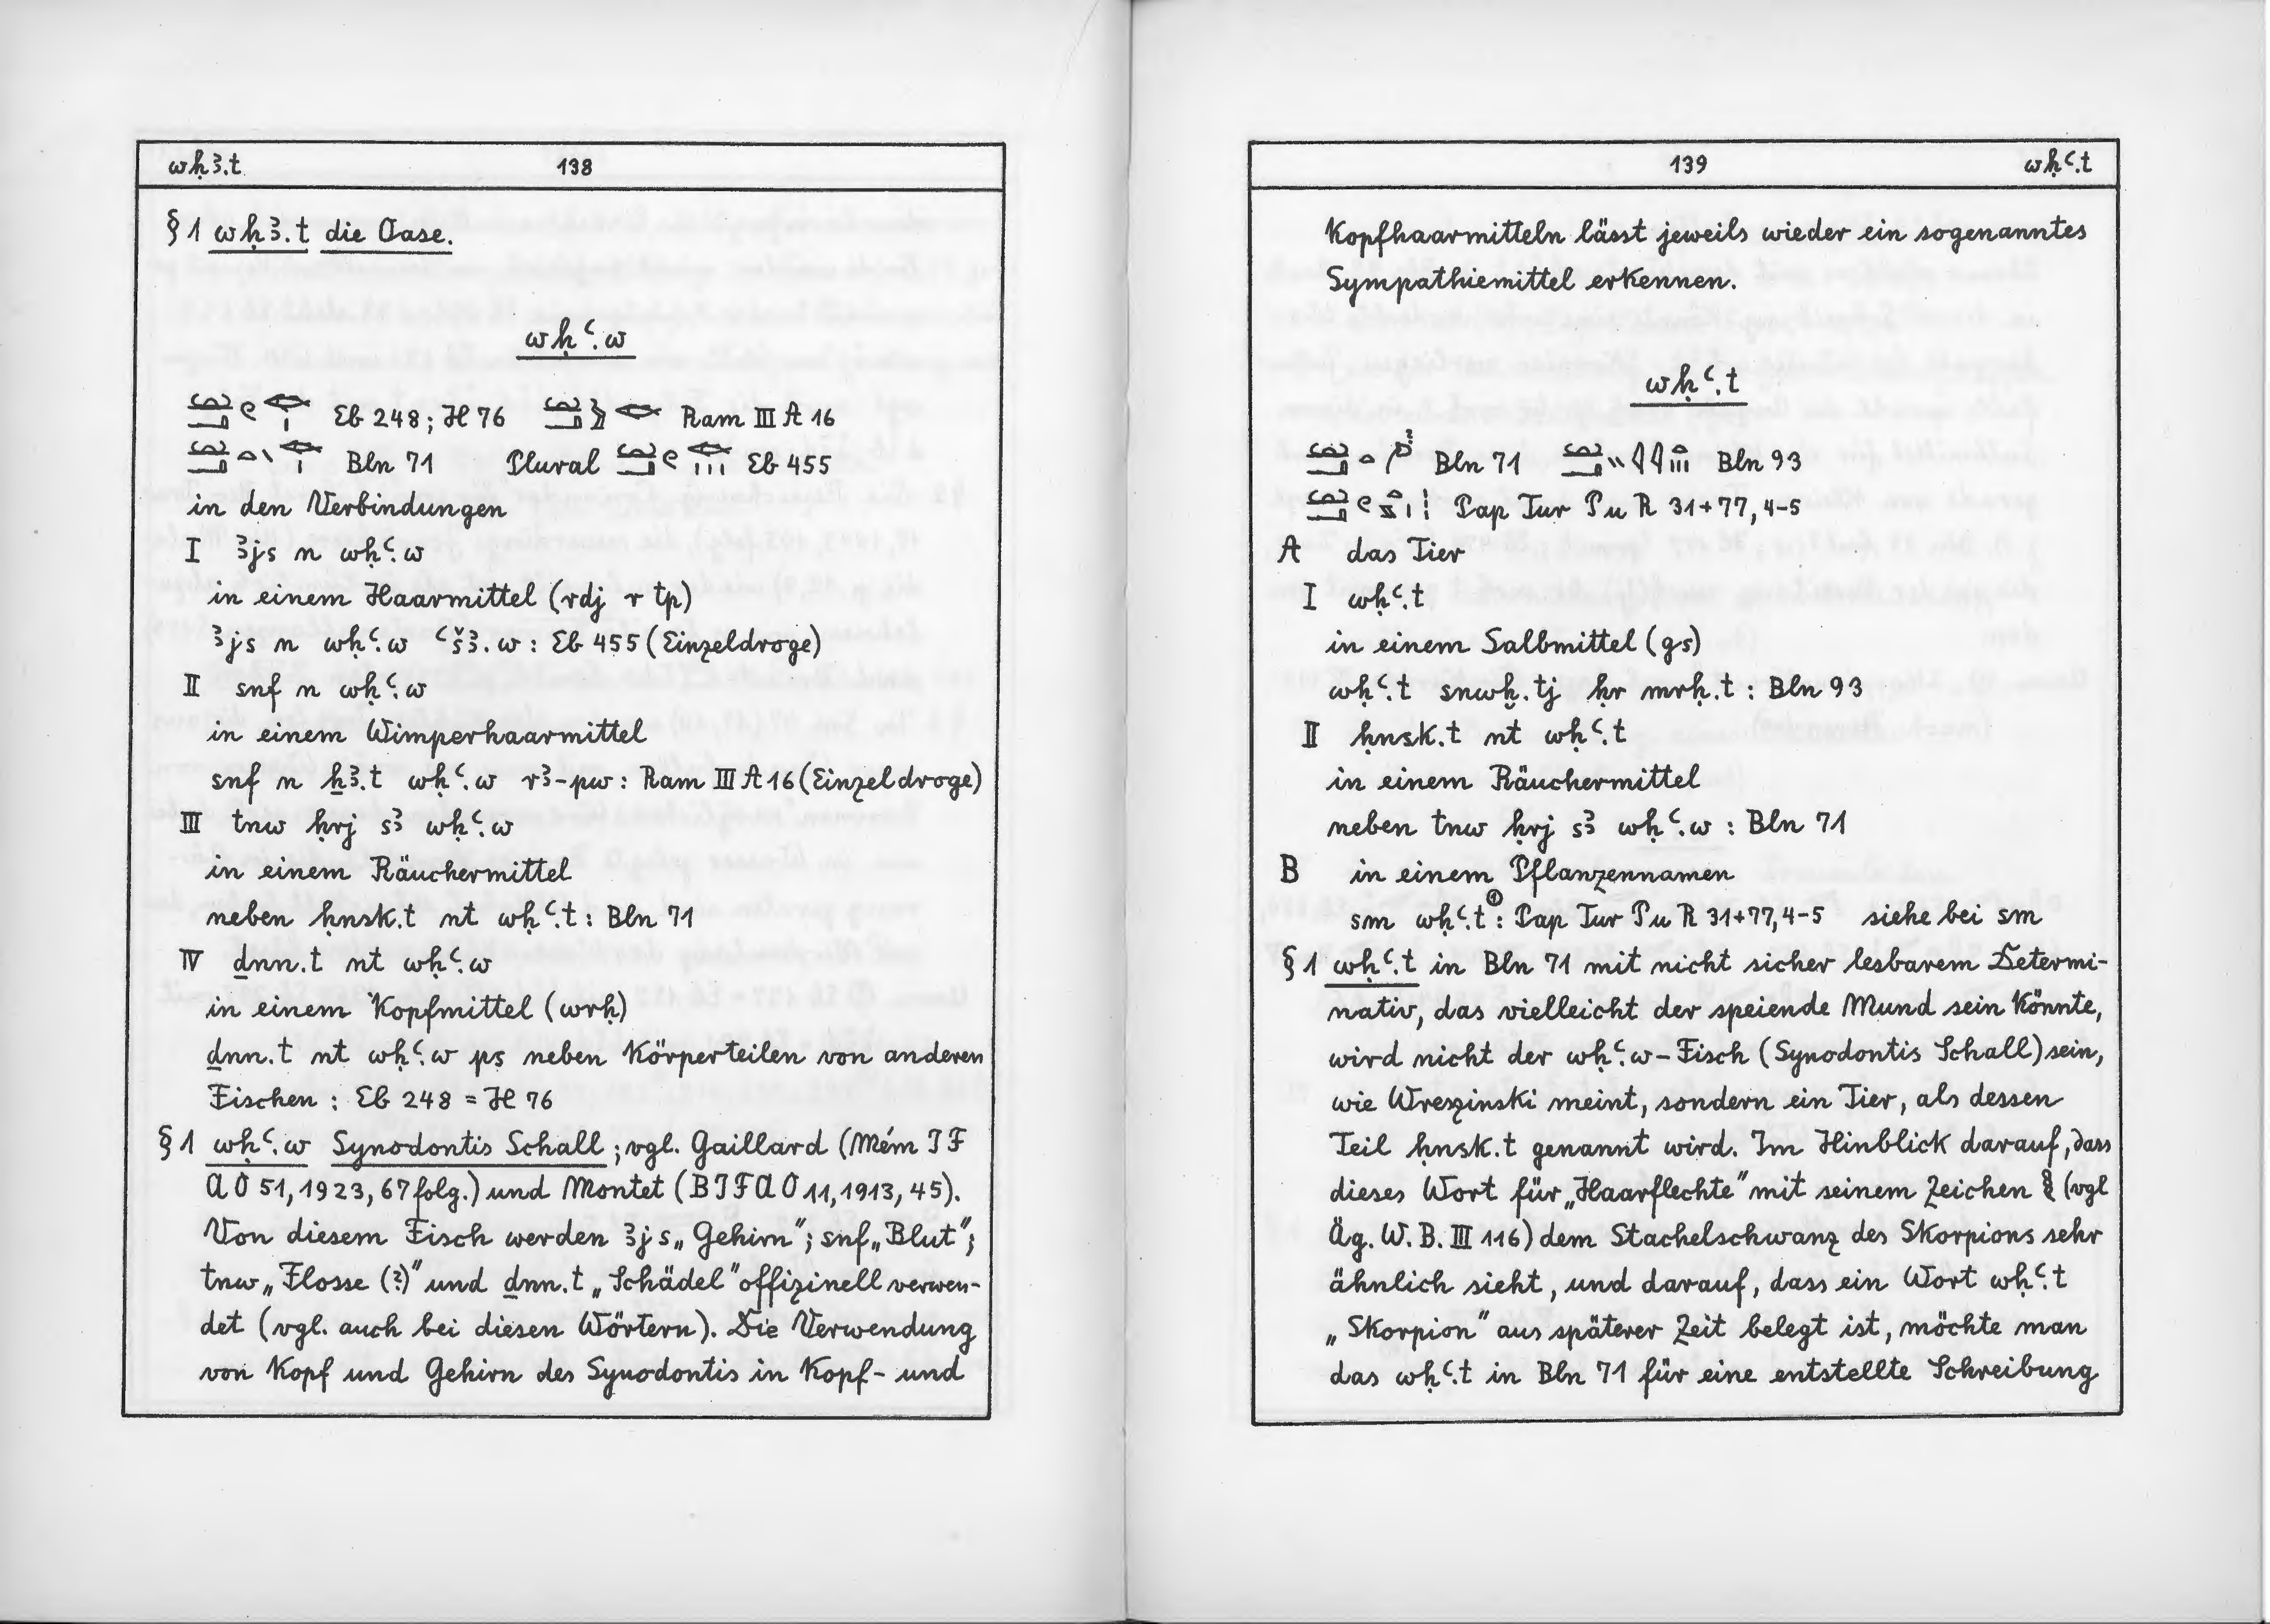 wḥꜣ.t 138
§ 1 wḥꜣ.t die Oase.
wḥꜥ.w
Eb 248; H 76 Ram III A 16
Bln 71 Plural Eb 455
in den Verbindungen
I ꜣjs n wḥꜥ.w
in einem Haarmittel (rdj r tp)
ꜣjs n wḥꜥ.w ꜥšꜣ.w : Eb 455 (Einzeldroge)
II snf n wḥꜥ.w
in einem Wimperhaarmittel
snf n ẖꜣ.t wḥꜥ.w rꜣ-pw : Ram III A 16 (Einzeldroge)
III tnw ḥrj sꜣ wḥꜥ.w
in einem Räuchermittel
neben ḥnsk.t nt wḥꜥ.t : Bln 71
IV ḏnn.t nt wḥꜥ.w
in einem Kopfmittel (wrḥ)
ḏnn.t nt wḥꜥ.w ps neben Körperteilen von anderen
Fischen : Eb 248 = H 76
§ 1 wḥꜥ.w Synodontis Schall ; vgl. Gaillard (Mém I F
A O 51, 1923, 67 folg.) und Montet (B I F A O 11, 1913, 45).
Von diesem Fisch werden ꜣjs „Gehirn"; snf „Blut";
tnw „Flosse (?)" und ḏnn.t „Schädel" offizinell verwen-
det (vgl. auch bei diesen Wörtern). Die Verwendung
von Kopf und Gehirn des Synodontis in Kopf- und
139 wḥꜥ.t
Kopfhaarmitteln lässt jeweils wieder ein sogenanntes
Sympathiemittel erkennen.
wḥꜥ.t
Bln 71 Bln 93
Pap Tur P u R 31+77, 4-5
A das Tier
I wḥꜥ.t
in einem Salbmittel (gs)
wḥꜥ.t snwḫ.tj ḥr mrḥ.t : Bln 93
II ḥnsk.t nt wḥꜥ.t
in einem Räuchermittel
neben tnw ḥrj sꜣ wḥꜥ.w : Bln 71
B in einem Pflanzennamen
sm wḥꜥ.t ① : Pap Tur P u R 31+77, 4-5 siehe bei sm
§ 1 wḥꜥ.t in Bln 71 mit nicht sicher lesbarem Determi-
nativ, das vielleicht der speiende Mund sein könnte,
wird nicht der wḥꜥ.w-Fisch (Synodontis Schall) sein,
wie Wreszinski meint, sondern ein Tier, als dessen
Teil ḥnsk.t genannt wird. Im Hinblick darauf, dass
dieses Wort für „Haarflechte" mit seinem Zeichen (vgl
Äg. W. B. III 116) dem Stachelschwanz des Skorpions sehr
ähnlich sieht, und darauf, dass ein Wort wḥꜥ.t
„Skorpion" aus späterer Zeit belegt ist, möchte man
das wḥꜥ.t in Bln 71 für eine entstellte Schreibung